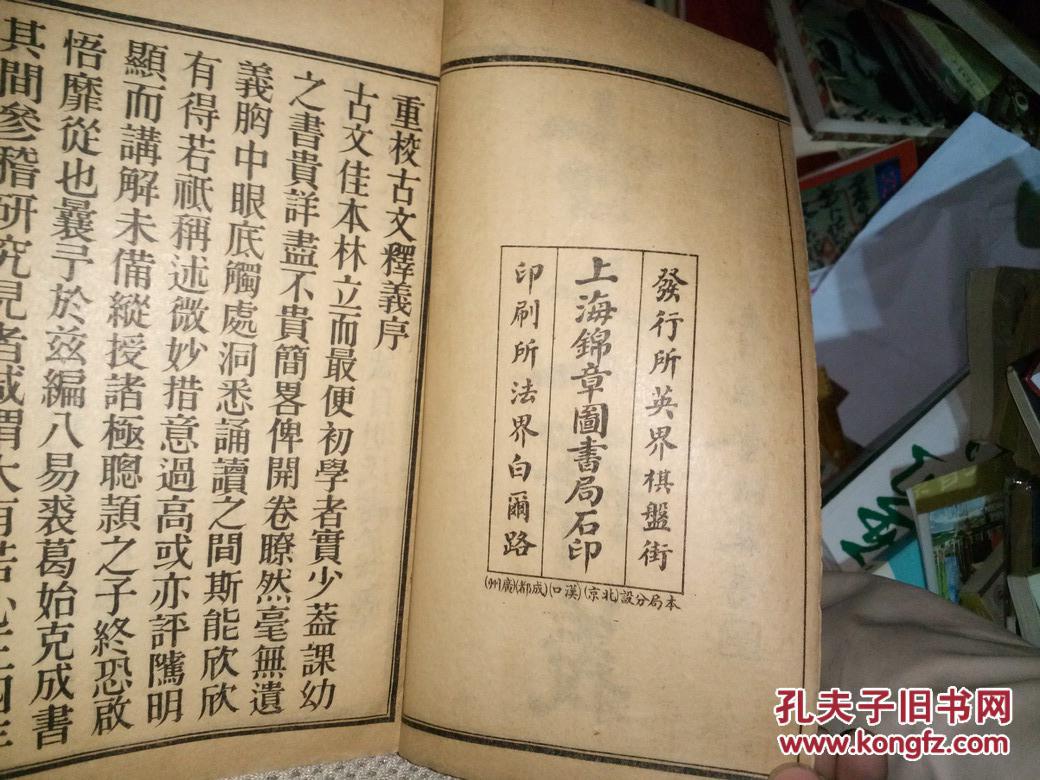 發行所英界棋盤街
上海錦章圖書局石印
印刷所法界白爾路
本局分設(北京)(漢口)(成都)(廣州)
重校古文釋義序
古文佳本林立而最便初學者實少蓋課幼
之書貴詳盡不貴簡畧俾開卷瞭然毫無遺
義胸中眼底觸處洞悉誦讀之間斯能欣欣
有得若祇稱述微妙措意過高或亦評隲明
顯而講解未備縱授諸極聰頴之子終恐啟
悟靡從也曩予於兹編八易裘葛始克成書
其間參稽研究見者咸謂大有苦心
孔夫子旧书网
www.kongfz.com